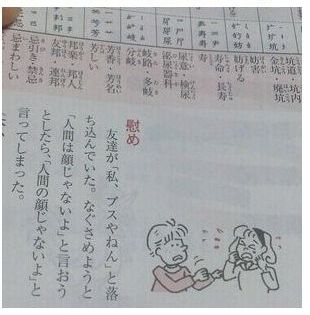 坑道・坑内
金坑・廃坑
妨害
妨げる
寿命・長寿
寿
尿意・検尿
泌尿器科
岐路・多岐
分岐
芳香・芳名
芳しい
邦楽・邦人
友邦・連邦
忌引き・禁忌
忌まわしい
慰め
友達が「私、ブスやねん」と落
ち込んでいた。なぐさめようと
「人間は顔じゃないよ」と言おう
としたら、「人間の顔じゃないよ」と
言ってしまった。